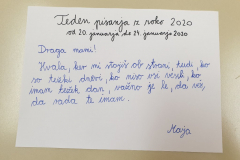 Teden pisanja z roko 2020
od 20. januarja do 24. januarja 2020
Draga mami!
Hvala, ker mi stojiš ob strani, tudi, ko
so težki dnevi, ko niso vse všeč, ko
imam težek dan, važno je le, da veš,
da rada te imam.
Maja